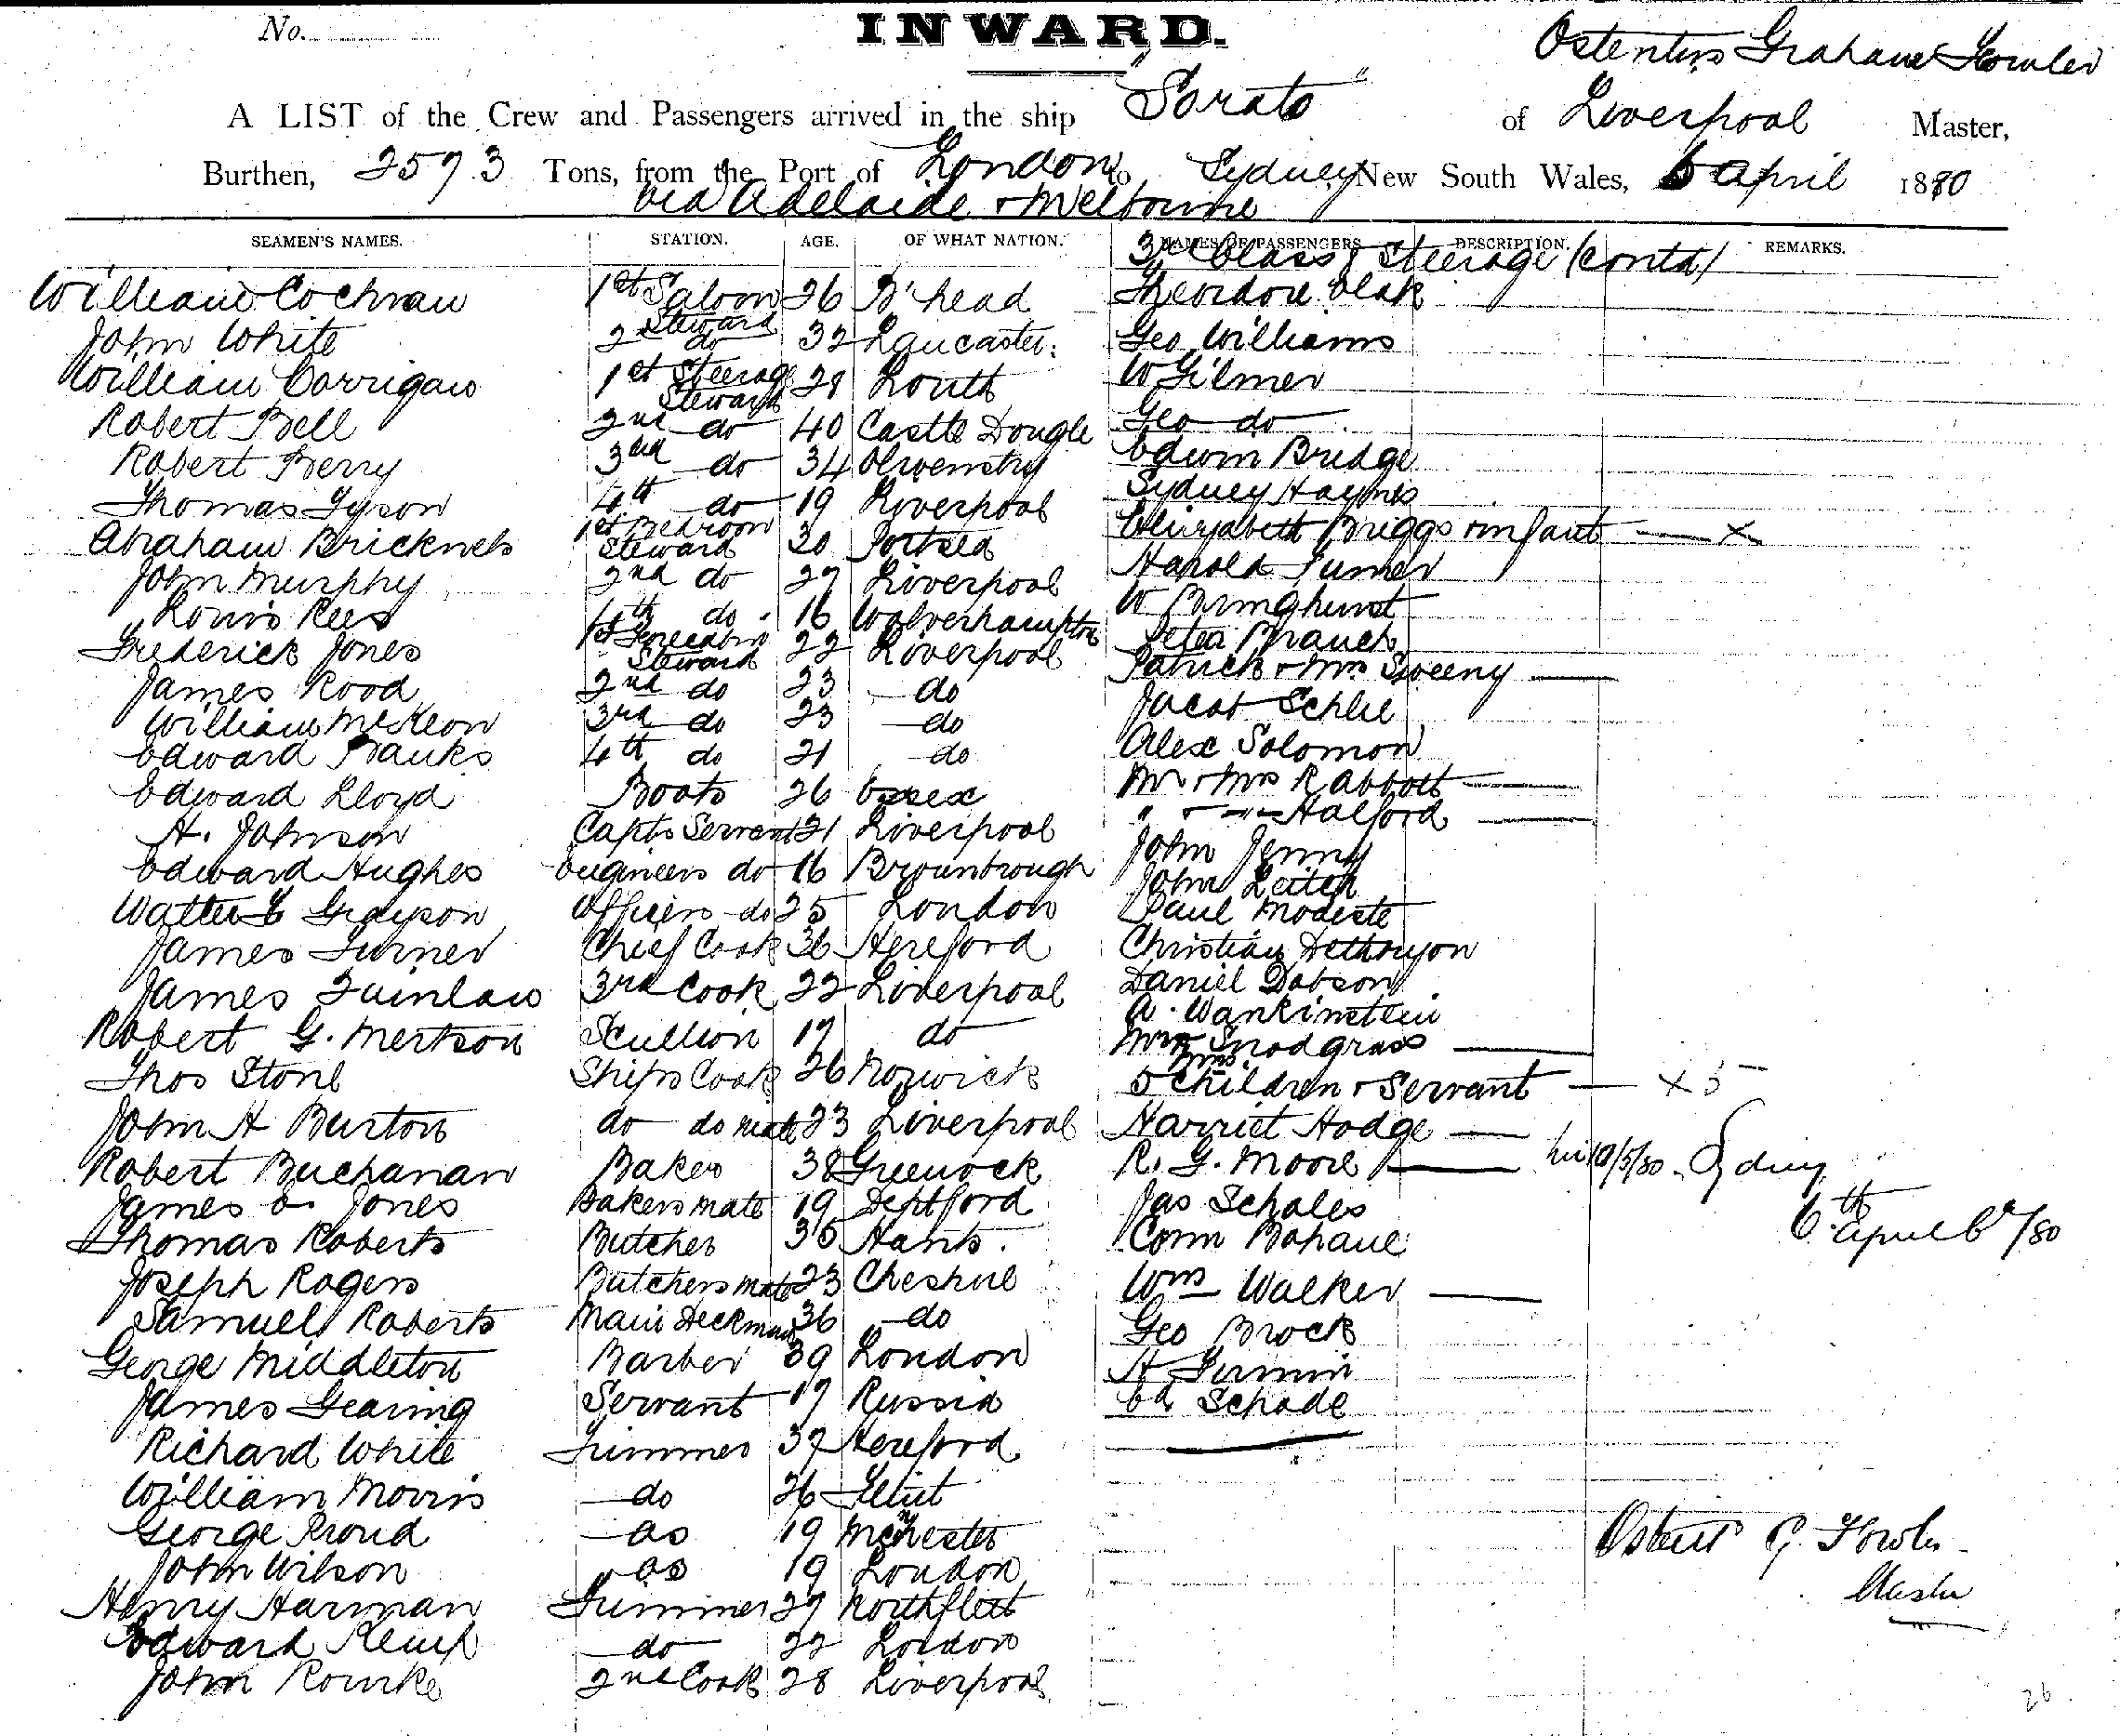 No.
INWARD.
Graham Fowler
A LIST of the Crew and Passengers arrived in the ship "Sorata" of Liverpool Master,
Burthen, 2573 Tons, from the Port of London to Sydney New South Wales, 6 April 1880
via Adelaide & Melbourne
SEAMEN'S NAMES. STATION. AGE. OF WHAT NATION. NAMES OF PASSENGERS DESCRIPTION. REMARKS.
3rd Class & Steerage (contd)
William Cochran 1st Saloon Steward 26 B'head Theodore
John White 2nd do 32 Lancaster Geo Williams
William Corrigan 1st Steerage Steward 28 Louth W Gilmer
Robert Bell 2nd do 40 Castle Dougle Geo do
Robert Berry 3rd do 34 Edwin Bridge
Thomas Tyson 4th do 19 Liverpool Sydney Haynes
Abraham Bricknels 1st Bedroom Steward 30 Portsea Elizabeth Briggs & infant — x
John Murphy 2nd do 27 Liverpool Harold Turner
Louis Rees 4th do 16 Wolverhampton W Bringhurst
Frederick Jones 1st Steward 22 Liverpool Peter Branch
James Rood 2nd do 23 do Patrick & Mrs Sweeny —
William McKeon 3rd do 23 do Jacob Schlie
Edward Banks 4th do 21 do Alex Solomon
Edward Lloyd Boots 26 Essex Mr & Mrs R Abbott —
H. Johnson Capts Servant 21 Liverpool " & " Halford —
Edward Hughes Engineers do 16 John Jenny
John Leitch
Walter E Grayson Officers do 25 London Paul Modeste
James Turner Chief Cook 36 Hereford Christian
James Quinlan 3rd Cook 22 Liverpool Daniel Dobson
A. Wankinstein
Robert G. Mertson Scullion 17 do Mrs Snodgrass —
Thos Stone Ships Cook 26 Norwick 5 Children & Servant — x 5
John H Burton do do mate 23 Liverpool Harriet Hodge —
Robert Buchanan Baker 38 Greenock R. G. Moore — 10/5/80 Sydney
James O. Jones Bakers mate 19 Deptford Jas Schales 6th
Thomas Roberts Butcher 35 Hants. Conn Bahaue April /80
Joseph Rogers Butchers mate 23 Cheshire Wm Walker —
Samuel Roberts Main Deckman 36 do Geo Brock
George Middleton Barber 39 London H Firmin
James Gearing Servant 17 Russia Ed Schade
Richard White Trimmer 37 Hereford
William Morris do 26
George Proud do 19 Mchester
John Wilson do 19 London
Henry Harman Trimmer 27 Northfleet
Edward Kemp do 22 London
John Rourke 2nd Cook 28 Liverpool
G. Fowler
Master
26